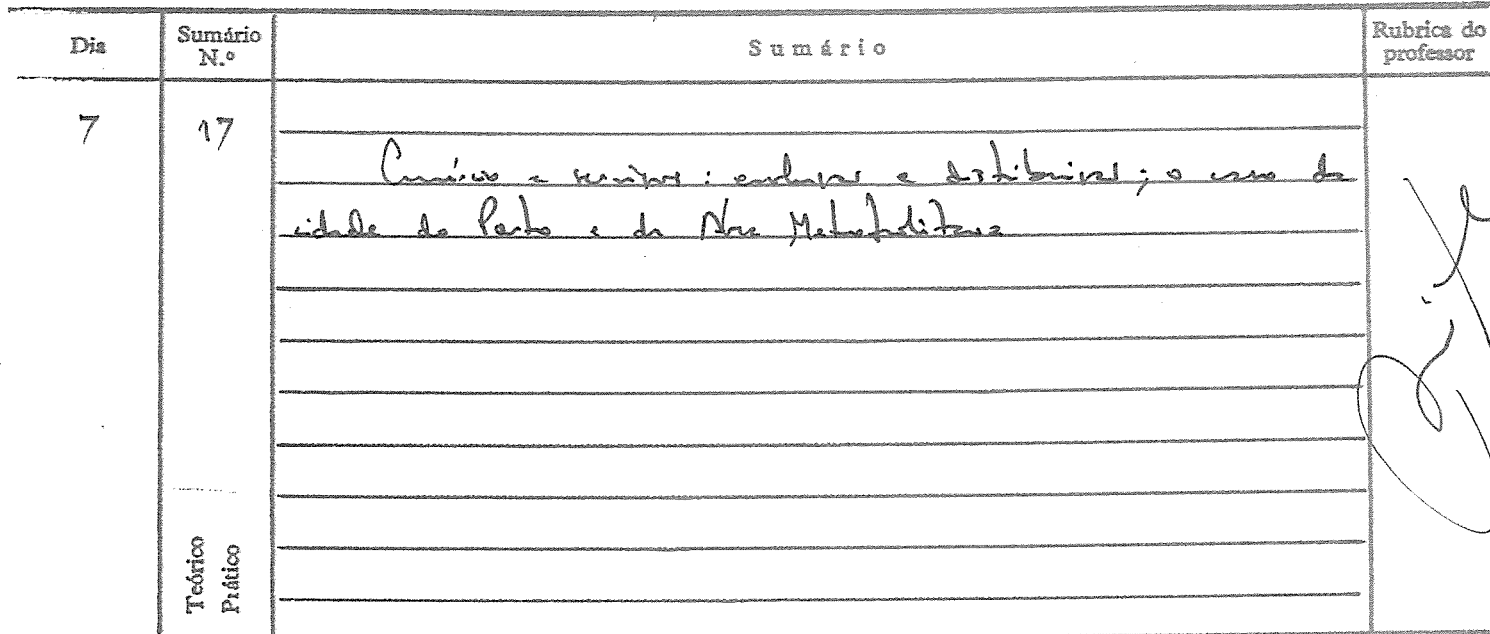 Dia
Sumário N.º
Sumário
Rubrica do professor
7
17
Comércio e serviços: evolução e distribuição; o caso da
cidade do Porto e da Área Metropolitana
Teórico
Prático